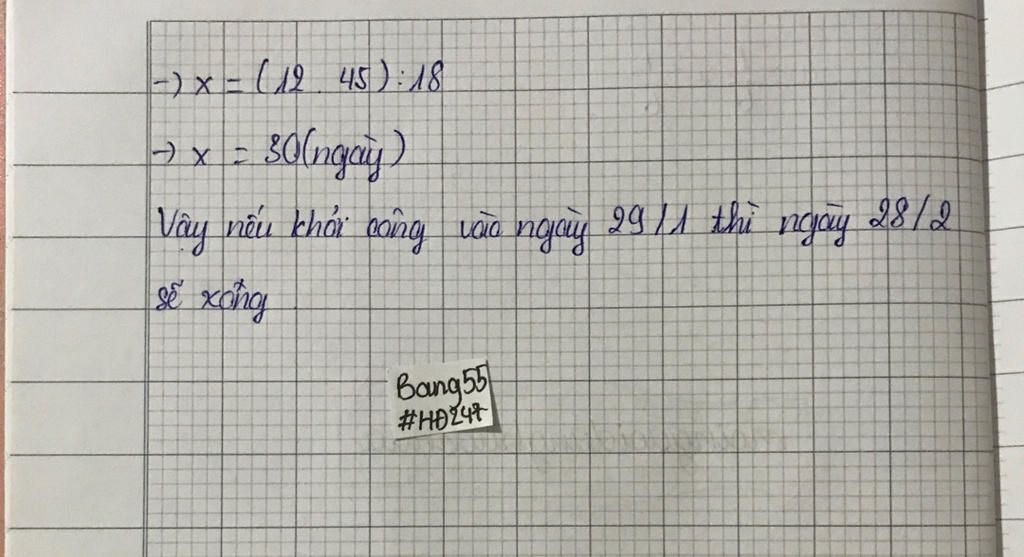 → x = (12 . 45) : 18
→ x = 30 (ngày)
Vậy nếu khởi công vào ngày 29/1 thì ngày 28/2
sẽ xông
Bang55
#HĐ247